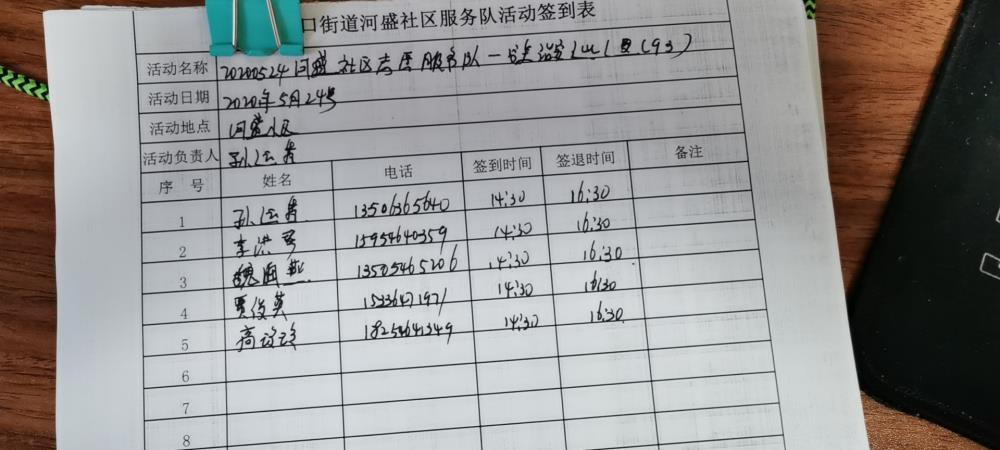 口街道河盛社区服务队活动签到表
活动名称 20200524河盛社区志愿服务队一
活动日期 2020年5月24号
活动地点 河盛小区
活动负责人 孙
序 号 姓名 电话 签到时间 签退时间 备注
1 孙 13506365640 14:30 16:30
2 李洪 15954640359 14:30 16:30
3 魏 13505465206 14:30 16:30
4 贾俊英 15336471971 14:30 16:30
5 高 18254641349 14:30 16:30
6
7
8